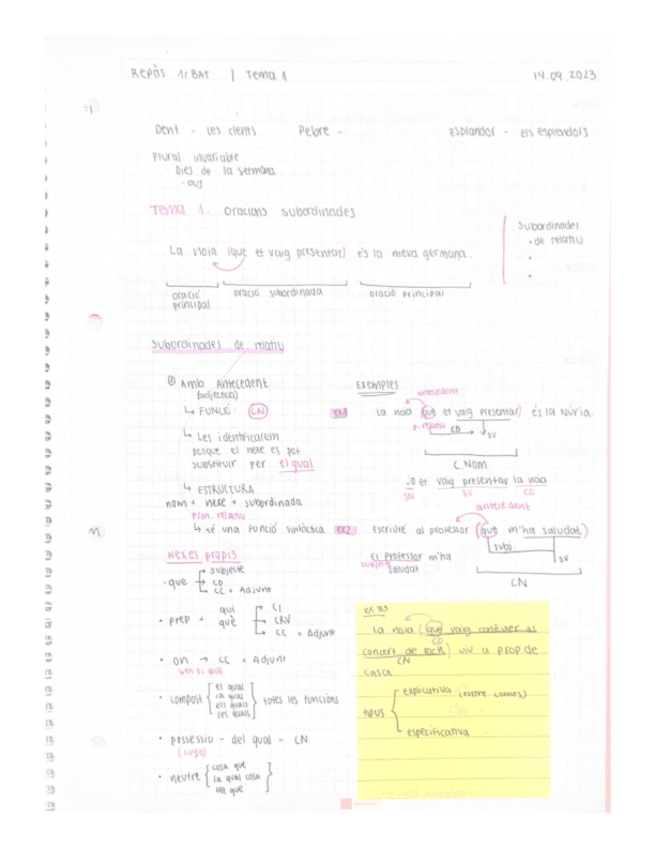 Repàs 1r BAT | Tema 1
14.09.2023
Dent - Les dents
Pebre -
Esplandor - els esplendors
Plural invariable
· Dies de la setmana
· -ous
Tema 1. Oracions subordinades
Subordinades
· de relatiu
·
·
La noia (que et vaig presentar) és la meva germana.
oració principal
oració subordinada
oració principal
Subordinades de relatiu
Amb Antecedent
(adjectiva)
↳ FUNCIÓ CN
↳ Les identificarem
perquè el nexe es pot
substituir per el qual
↳ ESTRUCTURA
nom + nexe + subordinada
Pron. relatiu
↳ té una funció sintàctica
Exemples
antecedent
ex1 La noia (que et vaig presentar) és la Núria.
p. relatiu CD SV
C Nom
Jo et vaig presentar la noia
SN SV CD
antecedent
ex2 Escriuré al professor (que m'ha saludat)
subj. SV
CN
El professor m'ha
saludat
subjecte
Nexes propis
· que → subjecte
→ CD
→ CC = Adjunt
· prep + qui
què
→ CI
→ CRV
→ CC = Adjunt
· on → CC = Adjunt
↳ en el qual
· compost { el qual
la qual
els quals
les quals } totes les funcions
· possessiu - del qual - CN
· neutre { cosa que
la qual cosa
pel que }
ex 33
La noia (que vaig conèixer al
CD
concert de rock) viu a prop de
CN
casa
tipus { explicativa (entre comes)
especificativa